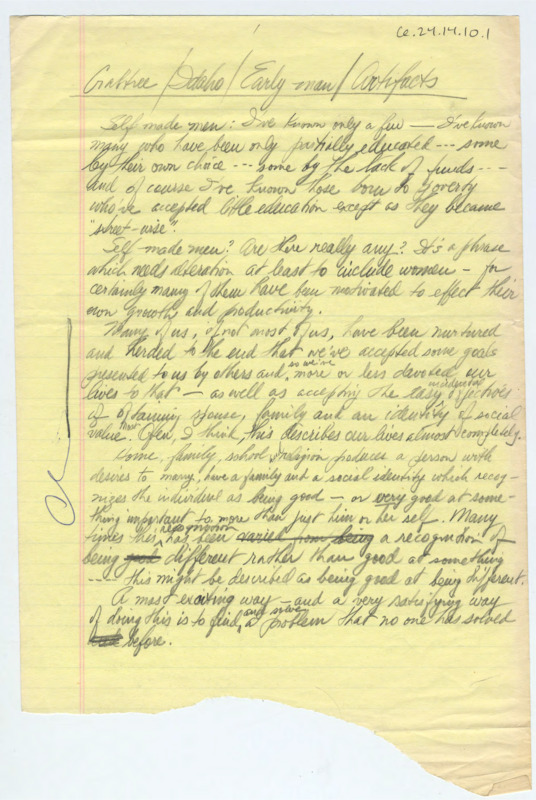 Ce.24.14.10.1
Crabtree / Idaho / Early man / Artifacts
Self made men: I've known only a few — I've known
many who have been only partially educated --- some
by their own choice --- some by the lack of funds ---
and of course I've known those born to poverty
who've accepted little education except as they became
"street-wise".
Self made men? Are there really any? It's a phrase
which needs alteration at least to include women - for
certainly many of them have been motivated to effect their
own growth and productivity.
Many of us, if not most of us, have been nurtured
and herded to the end that we've accepted some goals
presented to us by others and, so we've more or less devoted our
lives to that — as well as accepting the easy incidental
of obtaining spouse, family and an identity of social
value. Often, I think, this describes our lives almost completely.
family, school, religion produces a person with
desires to marry, have a family and a social identity which recog-
nizes the individual as being good — or very good at some-
thing important to more than just him or her self. Many
times this recognition has been varied from being a recognition of
being different rather than good at something
--- this might be described as being good at being different.
A most exciting way — and a very satisfying way
of doing this is to find, and solve a problem that no one has solved
before.